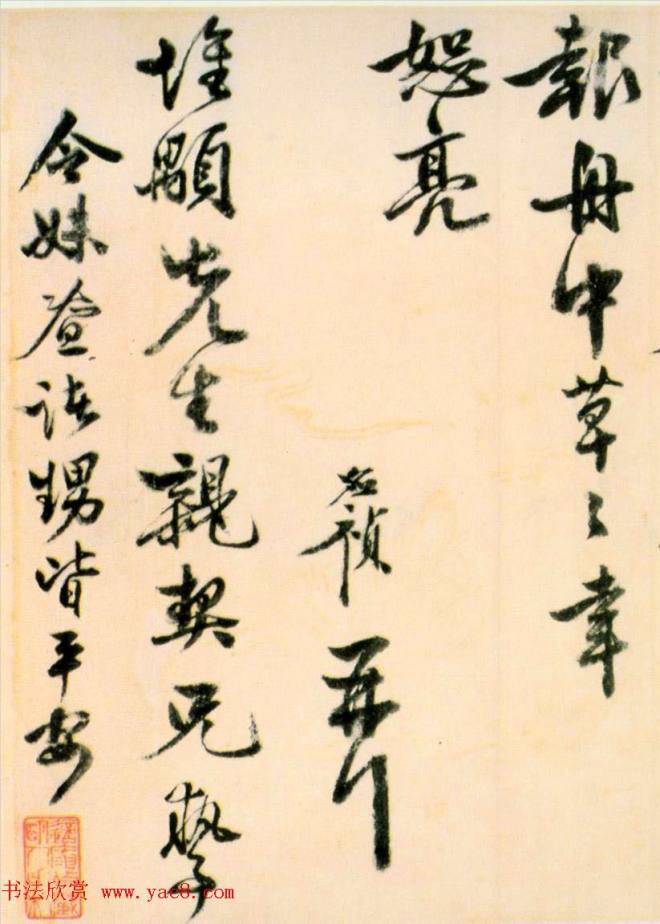 報舟中草々幸
恕亮
名禎再行
堆顒先生親契兄執事
令妹暨諸甥皆平安
书法欣赏 www.yac8.com